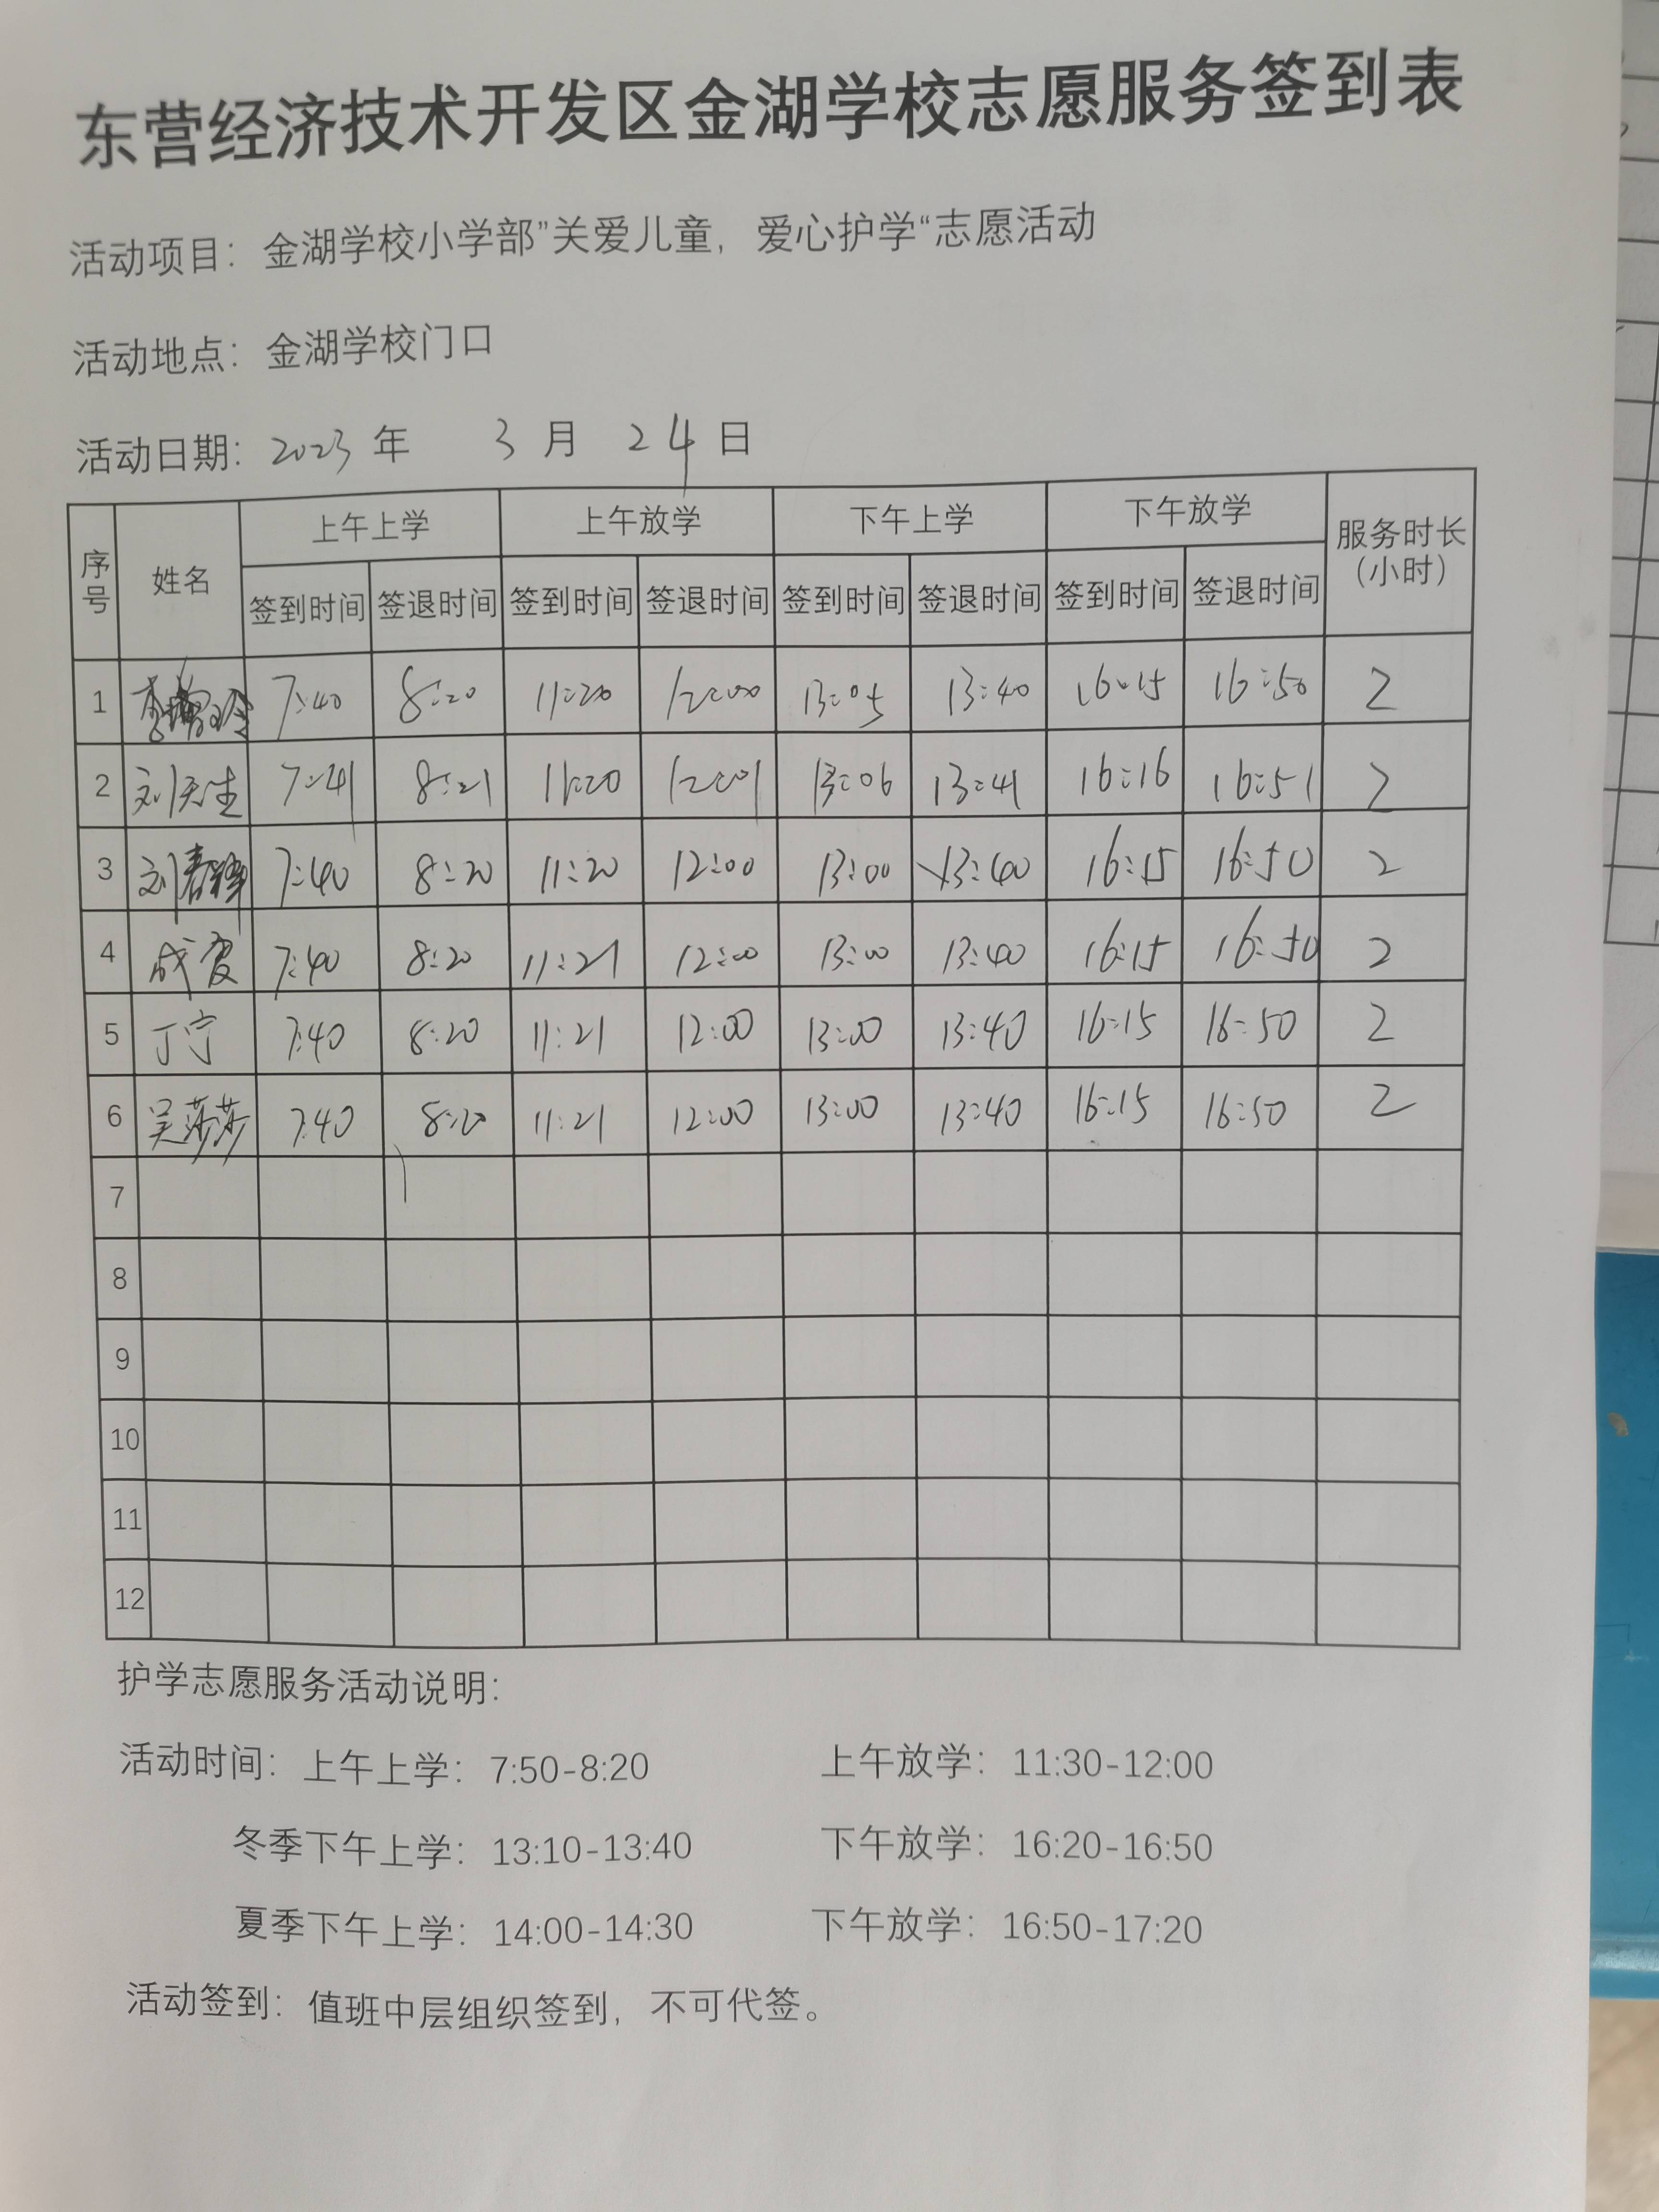 东营经济技术开发区金湖学校志愿服务签到表
活动项目：金湖学校小学部”关爱儿童，爱心护学“志愿活动
活动地点：金湖学校门口
活动日期：2023 年 3 月 24 日
序号 姓名 上午上学 上午放学 下午上学 下午放学 服务时长（小时）
签到时间 签退时间 签到时间 签退时间 签到时间 签退时间 签到时间 签退时间
1 7:40 8:20 11:20 12:00 13:05 13:40 16:15 16:50 2
2 刘天生 7:41 8:21 11:20 12:01 13:06 13:41 16:16 16:51 2
3 刘春 7:40 8:20 11:20 12:00 13:00 13:40 16:15 16:50 2
4 成霞 7:40 8:20 11:21 12:00 13:00 13:40 16:15 16:50 2
5 丁宁 7:40 8:20 11:21 12:00 13:00 13:40 16:15 16:50 2
6 吴莎莎 7:40 8:20 11:21 12:00 13:00 13:40 16:15 16:50 2
7
8
9
10
11
12
护学志愿服务活动说明：
活动时间：上午上学：7:50-8:20 上午放学：11:30-12:00
冬季下午上学：13:10-13:40 下午放学：16:20-16:50
夏季下午上学：14:00-14:30 下午放学：16:50-17:20
活动签到：值班中层组织签到，不可代签。